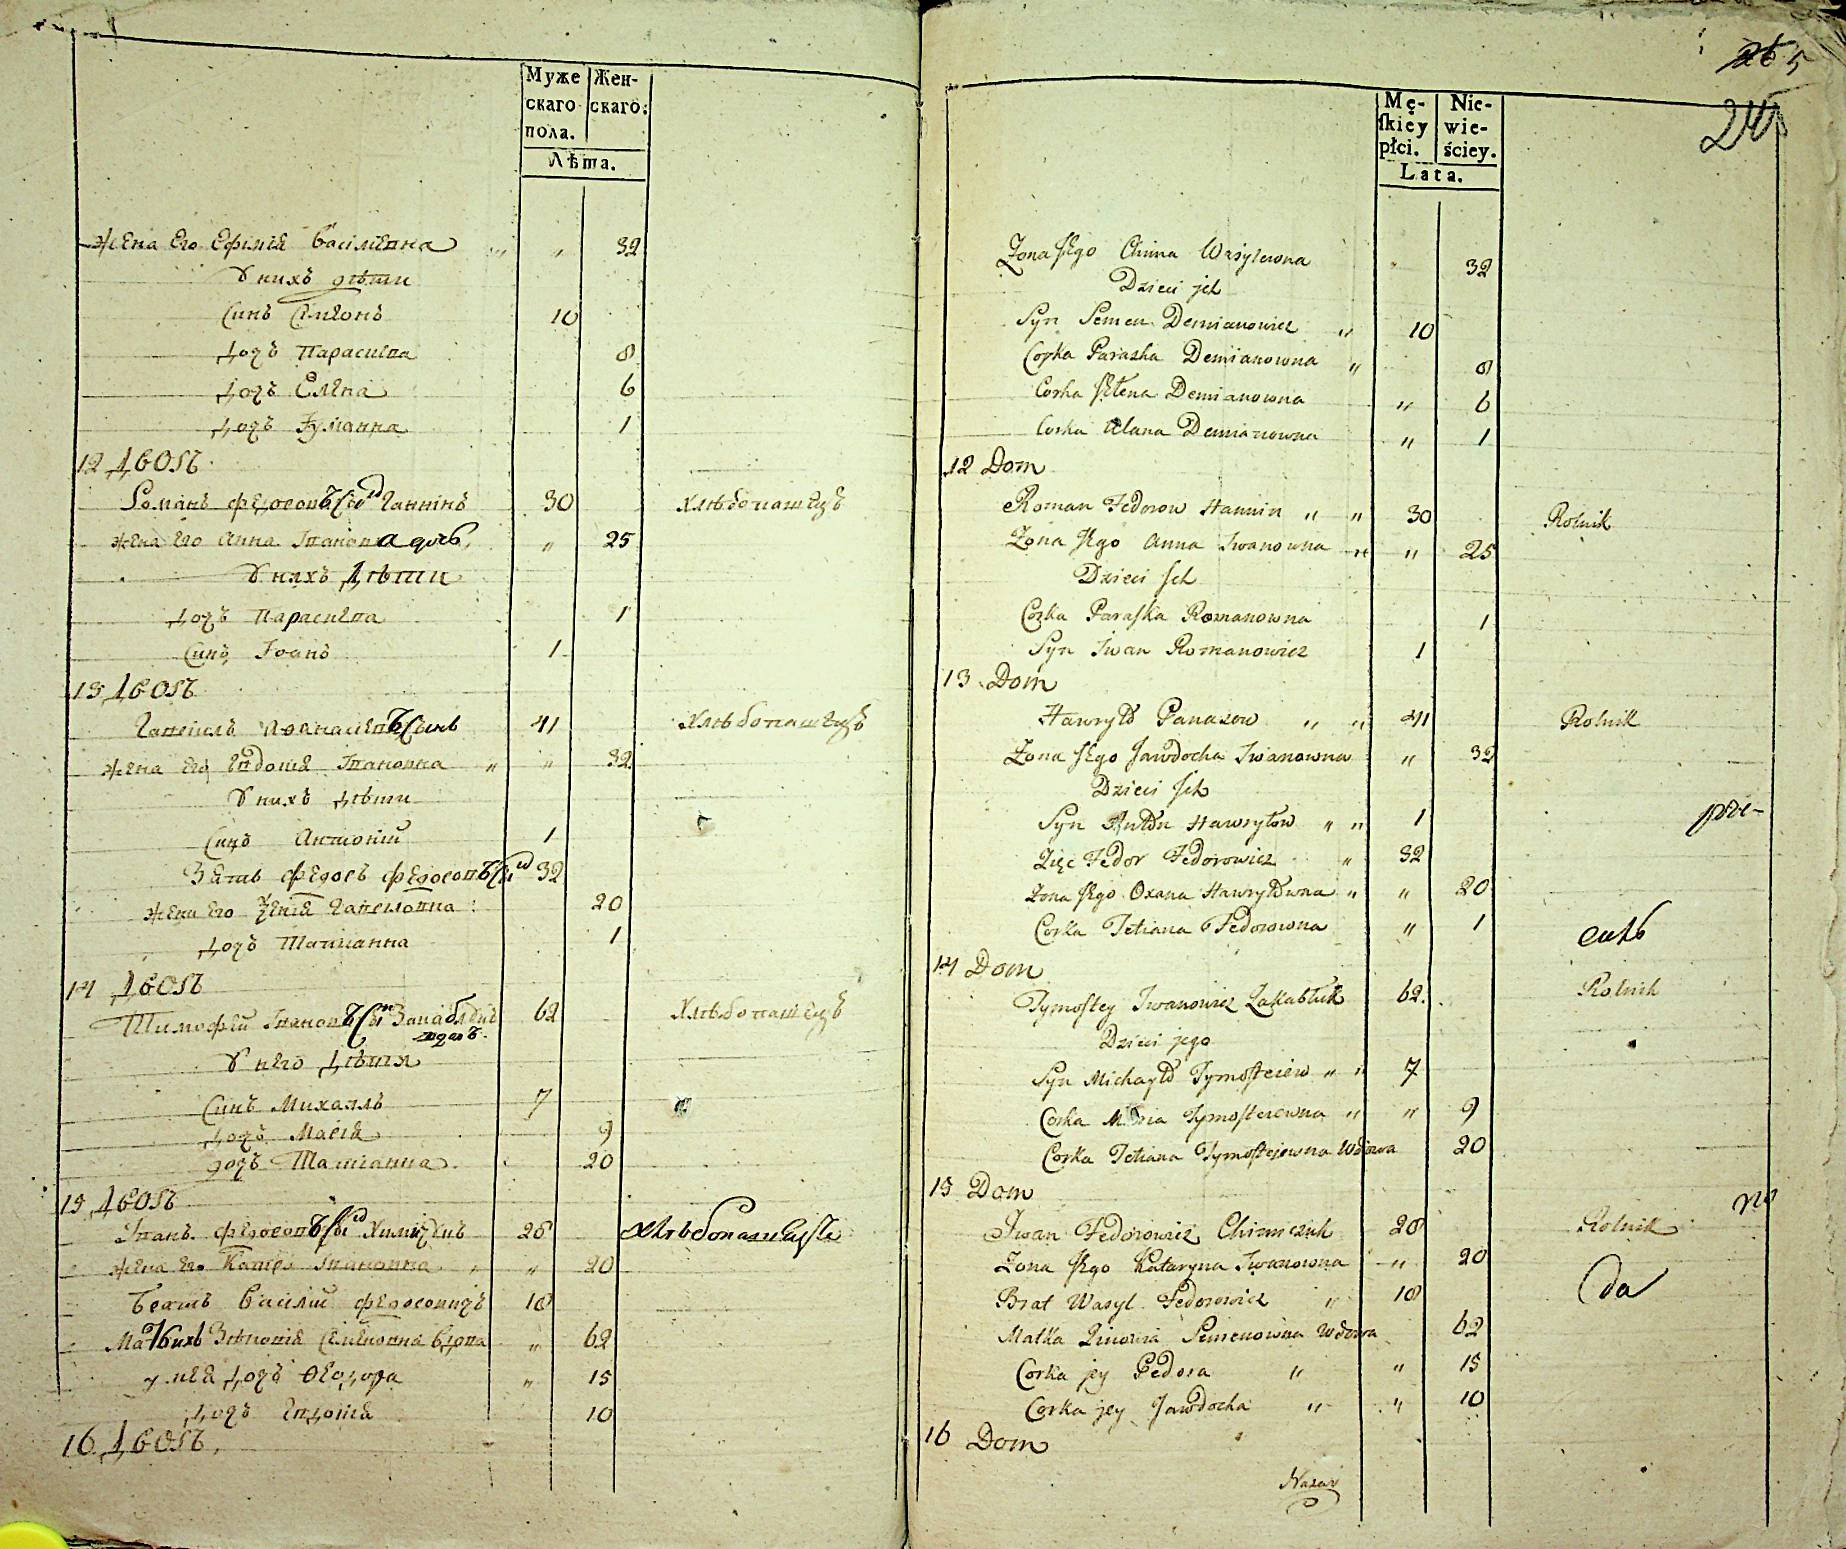 Муже скаго пола.
Жен- скаго:
Лѣта.
жена Его Ефимія Василевна " " 32
У нихъ дѣти
Синъ Симеонъ 10
Дочъ Параскева 8
Дочъ Елена 6
Дочъ Іуліанна 1
12 Дворъ
Романъ Федоровъ Сынъ Ганнінъ 30 Хлѣбопашецъ
жена его Анна Іванова дочь " 25
У нихъ Дѣти
Дочъ Параскева 1
Синъ Іоанъ 1
13 Дворъ
Гавриилъ Афанасіевъ Сынъ 41 Хлѣбопашецъ
жена Его Евдокія Івановна " " 32
У нихъ Дѣти
Синъ Антоній 1
Зять Федоръ Федоровъ Сынъ 32
жена Его Гавриловна 20
Дочъ Татіанна 1
14 Дворъ
Тимофій Івановъ Сынъ 62 Хлѣбопашецъ
У него Дѣти
Синъ Михаилъ 7
Дочъ Марія 9
дочъ Татіанна 20
15 Дворъ
Іванъ Федоровъ Сынъ Химичукъ 28 Хлѣбопашецъ
жена Его Івановна " 20
Братъ Василій Федоровичъ 18
Мать ихъ Зѣновія Симеовна Вдова " 62
у нея Дочъ Феодора " 15
Дочъ Евдокія 10
16 Дворъ
5
24
Mę- skiey płci.
Nie- wie- ściey.
Lata.
Zona Jego Chima Wasylewna 32
Dzieci jch
Syn Semen Demianowicz " 10
Corka Paraska Demianowna " 8
Corka Jełena Demianowna " 6
Corka Ulana Demianowna " 1
12 Dom
Roman Fedorow Hannin " " 30 Rolnik
Zona Jego Anna Iwanowna " " 25
Dzieci Jch
Corka Paraska Romanowna 1
Syn Iwan Romanowicz 1
13 Dom
Hawryło Panasow " " 41 Rolnik
Zona Jego Jawdocha Iwanowna " 32
Dzieci Jch
Syn Anton Hawryłow " " 1
Zięc Fedor Fedorowicz " 32
Zona Jego Oxana Hawryłowna " " 20
Corka Tetiana Fedorowna " 1
14 Dom
Tymoftey Iwanowicz Zakabluk 62 Rolnik
Dzieci jego
Syn Michayło Tymofteiew " " 7
Corka Maria Tymofteiewna " " 9
Corka Tetiana Tymoftejewna Wdowa 20
15 Dom
Iwan Fedorowicz Chimiczuk 28 Rolnik
Zona Jego Kataryna Iwanowna " 20
Brat Wasyl Fedorowicz " 18
Matka Zinowia Semenowna Wdowa 62
Corka jey Fedora " " 15
Corka jey Jawdocha " " 10
16 Dom
Nazar